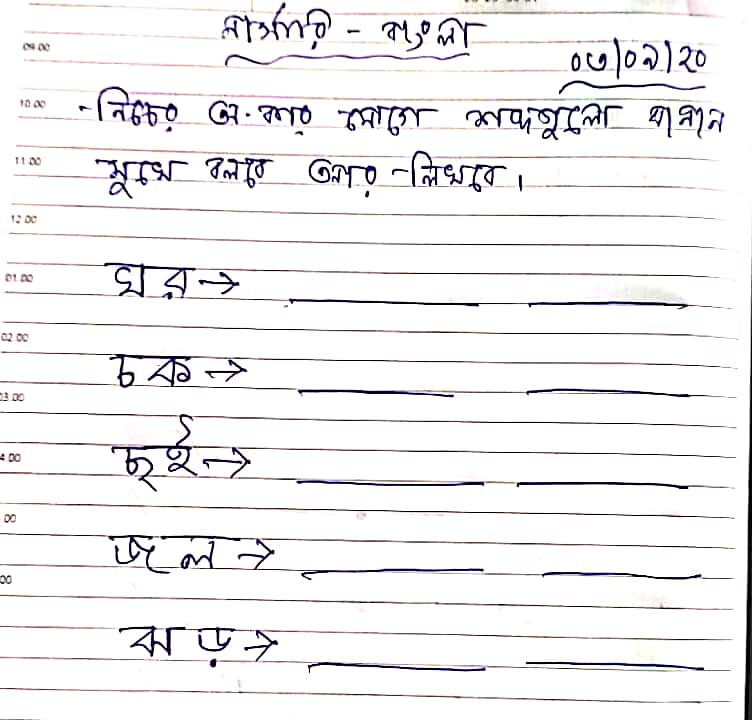 নার্সারি - বাংলা
০৩/০৯/২০
09.00
10.00 -নিচের অ-কার যোগে শব্দগুলো বানান
11.00 মুখে বলবে আর লিখবে।
12.00
01.00 ঘর→
02.00
চক→
03.00
4.00 ছই→
00
জল→
00
ঝড়→